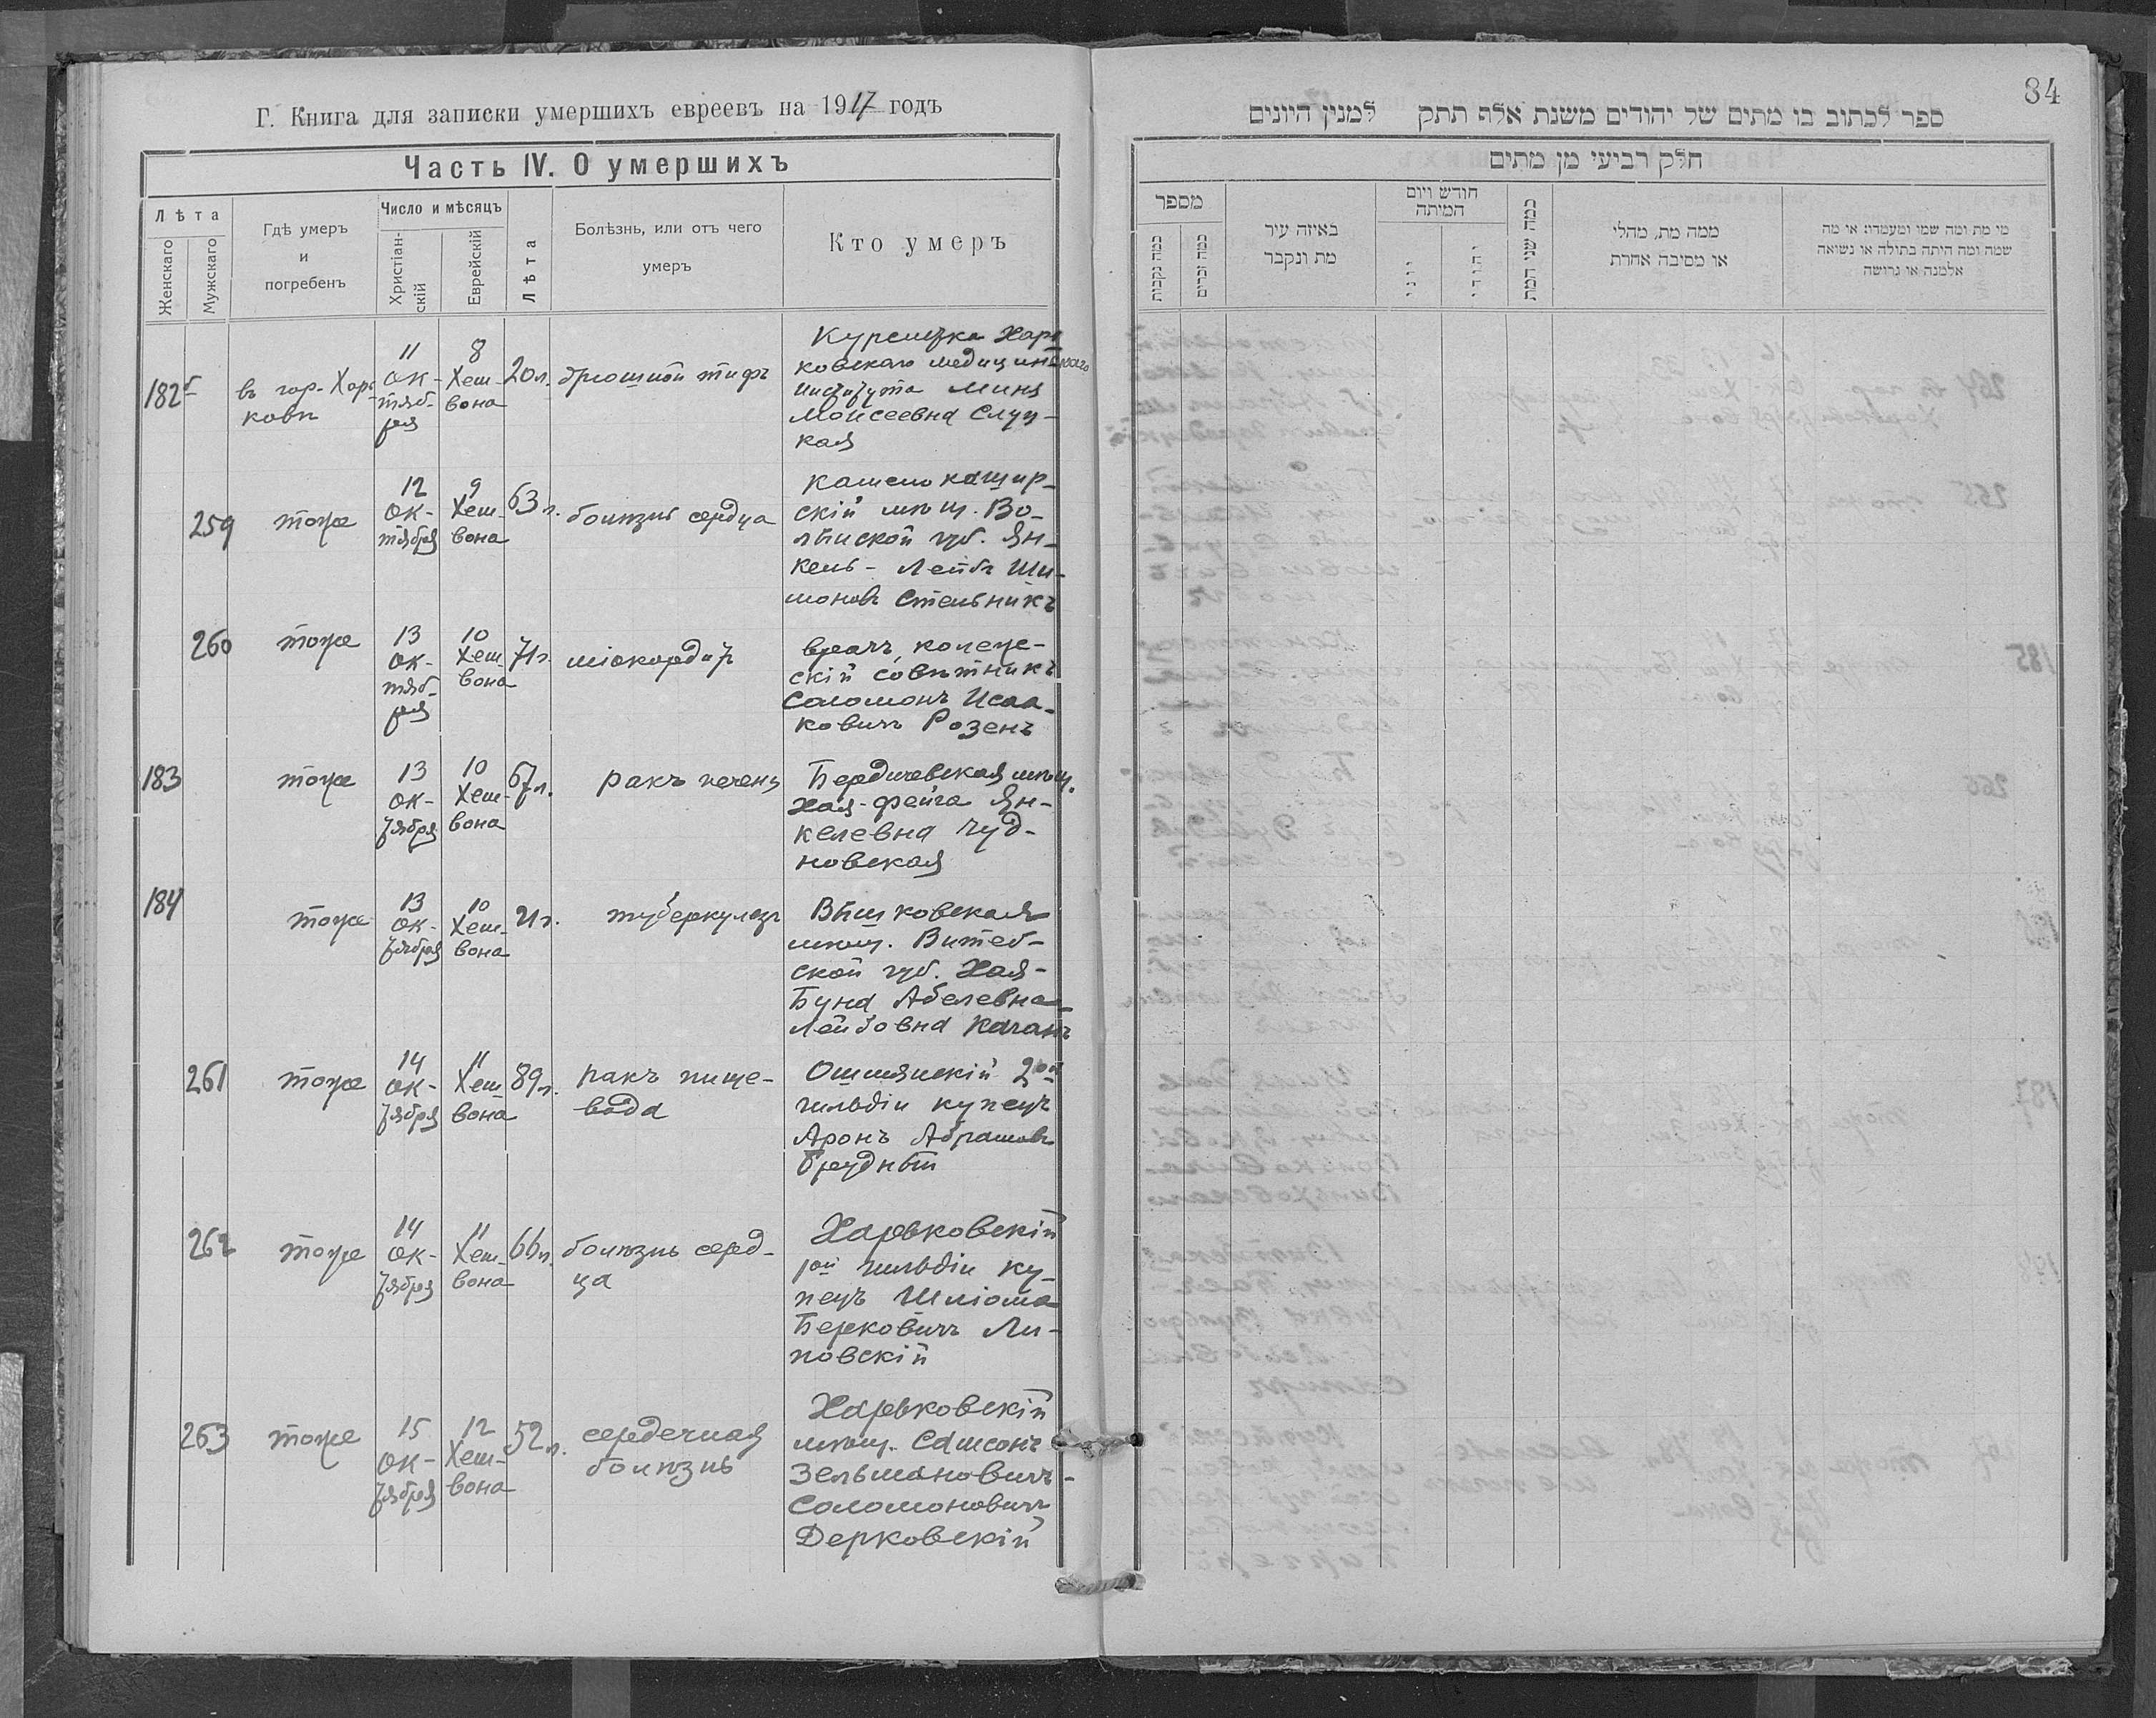 Г. Книга для записки умершихъ евреевъ на 1917 годъ
Часть IV. О умершихъ
Лѣта
Женскаго
Мужскаго
Гдѣ умеръ
и
погребенъ
Число и мѣсяцъ
Христіан-
скій
Еврейскій
Лѣта
Болѣзнь, или отъ чего
умеръ
Кто умеръ
182
въ гор. Харь
ковѣ
11
Ок-
тяб-
ря
8
Хеш-
вона
20 л.
брюшной тифъ
Курсистка Харь
ковскаго медицинскаго
института Мина
Моисеевна Слуц-
кая
259
тоже
12
Ок-
тября
9
Хеш-
вона
63 л.
болѣзнь сердца
Камено кашир
скій мѣщ. Во-
лынской губ. Ян-
кель-Лейбъ Ши-
моновъ Стельникъ
260
тоже
13
Ок-
тяб-
ря
10
Хеш
вона
71 л.
міокордитъ
врачъ, колеже-
скій совѣтникъ
Соломонъ Исаа-
ковичъ Розенъ
183
тоже
13
Ок-
тября
10
Хеш-
вона
67 л.
ракъ печени
Бердичевская мѣщ.
Хая-Фейга Ян-
келевна Чуд-
новская
184
тоже
13
Ок-
тября
10
Хеш-
вона
21 г.
туберкулезъ
Вышковская
мѣщ. Витеб-
ской губ. Хая-
Буна Абелевна-
Лейбовна Каганъ
261
тоже
14
Ок-
тября
11
Хеш
вона
89 л.
ракъ пище-
вода
Ошмянскій 2ой
гильдіи купецъ
Аронъ Абрамовъ
Брудный
262
тоже
14
Ок-
тября
11
Хеш-
вона
66 л.
болѣзнь серд-
ца
Харьковскій
1ой гильдіи ку-
пецъ Шліома
Берковичъ Ли-
повскій
263
тоже
15
Ок-
тября
12
Хеш-
вона
52 л.
сердечная
болѣзнь
Харьковскій
мѣщ. Самсонъ
Зельмановичъ-
Соломоновичъ
Дерковскій
84
ספר לכתוב בו מתים של יהודים משנת אלף תתק למנין היונים
חלק רביעי מן מתים
מספר
כמה נקבות
כמה זכרים
באיזה עיר
מת ונקבר
חודש ויום
המיתה
יוני
יהודי
כמה שני המת
ממה מת, מחלי
או מסיבה אחרת
מי מת ומה שמו ומעמדו: או מה
שמה ומה היתה בתולה או נשואה
אלמנה או גרושה